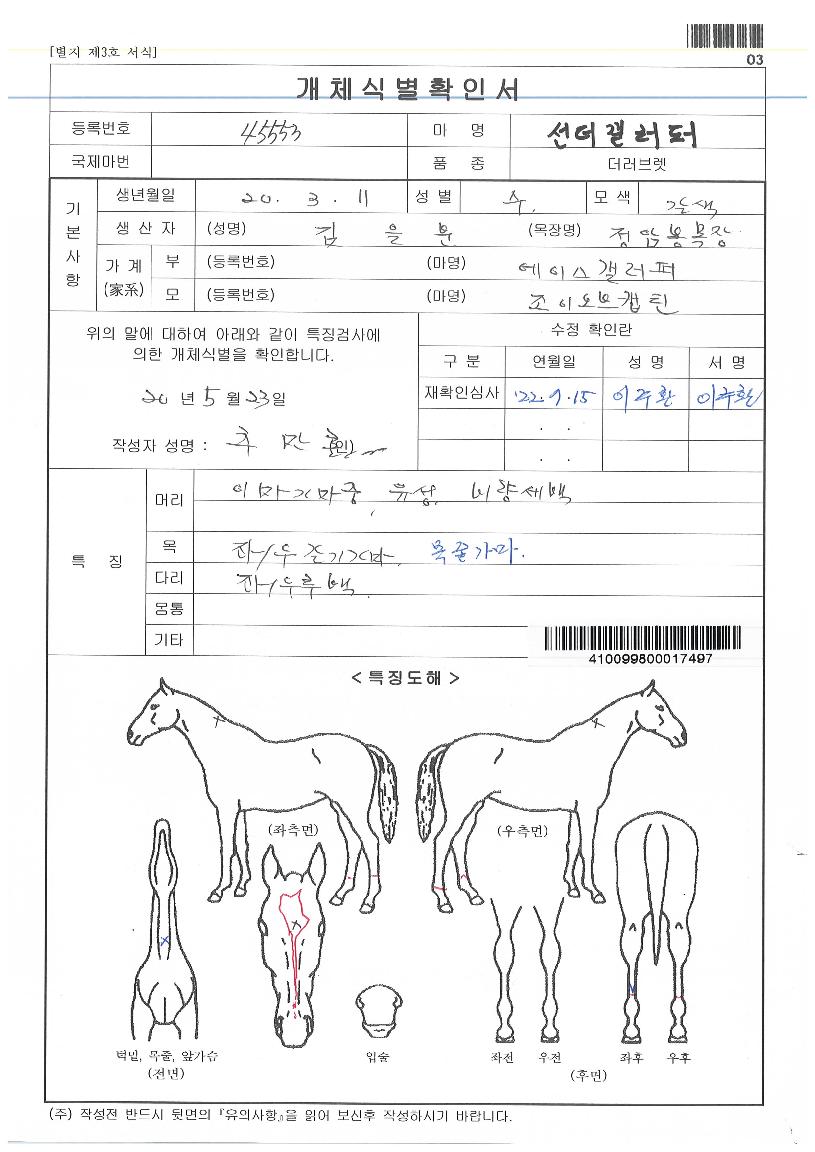 [별지 제3호 서식]
03
개체식별확인서
등록번호 45553 마 명 선더갤러퍼
국제마번 품 종 더러브렛
기본사항
생년월일 20. 3. 11 성 별 수. 모 색 갈색
생 산 자 (성명) 김 을 분 (목장명) 정암봉목장
가 계 (家系) 부 (등록번호) (마명) 에이스갤러퍼
모 (등록번호) (마명) 조이오브캡틴
위의 말에 대하여 아래와 같이 특징검사에
의한 개체식별을 확인합니다.
20 년 5 월 23 일
작성자 성명 : (인)
수정 확인란
구 분 연월일 성 명 서 명
재확인심사 '22.9.15 이주환 이주환
. .
. .
특 징
머리 이마가마중, 유성, 비량세백
목 좌/우 준기가마. 목줄가마.
다리 좌/우후백.
몽통
기타
410099800017497
< 특징도해 >
(좌측면) (우측면)
턱밑, 목줄, 앞가슴
(전면)
입술
좌전 우전 좌후 우후
(후면)
(주) 작성전 반드시 뒷면의 『유의사항』을 읽어 보신후 작성하시기 바랍니다.